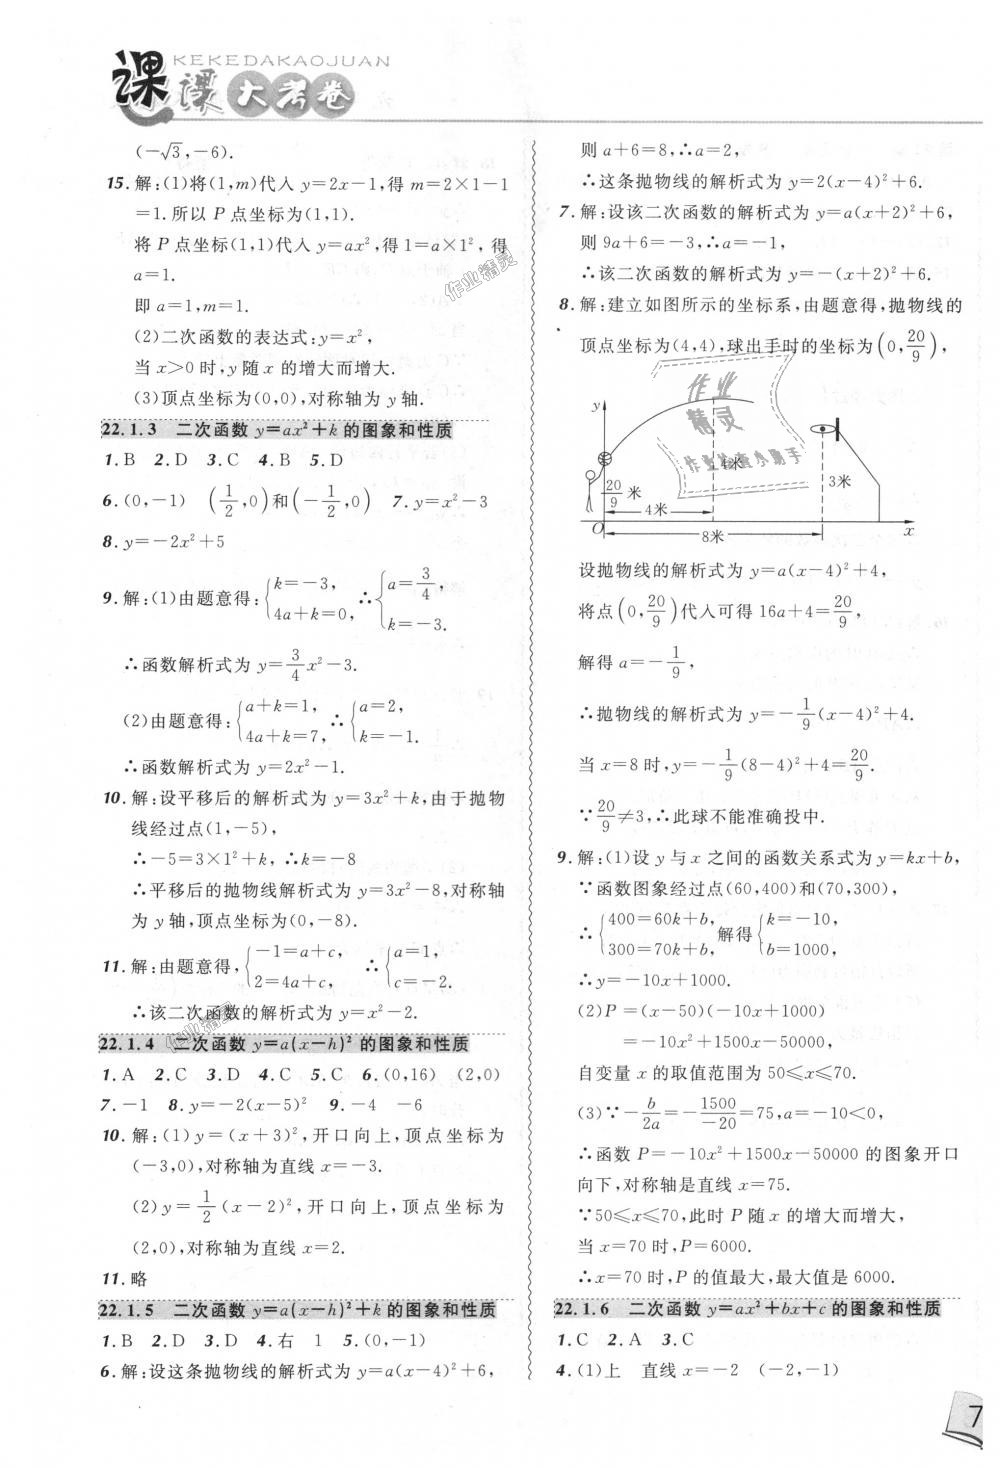 KEKEDAKAOJUAN
课课大考卷
(-√3,-6).
15.解:(1)将(1,m)代入 y=2x-1,得 m=2×1-1
=1.所以 P 点坐标为(1,1).
将 P 点坐标(1,1)代入 y=ax²,得1=a×1²,得
a=1.
即 a=1,m=1.
(2)二次函数的表达式:y=x²,
当 x>0 时,y 随 x 的增大而增大.
(3)顶点坐标为(0,0),对称轴为 y 轴.
22.1.3 二次函数 y=ax²+k 的图象和性质
1.B 2.D 3.C 4.B 5.D
6.(0,-1) (1/2,0)和(-1/2,0) 7.y=x²-3
8.y=-2x²+5
9.解:(1)由题意得:{k=-3, 4a+k=0, ∴{a=3/4, k=-3.
∴函数解析式为 y=3/4x²-3.
(2)由题意得:{a+k=1, 4a+k=7, ∴{a=2, k=-1.
∴函数解析式为 y=2x²-1.
10.解:设平移后的解析式为 y=3x²+k,由于抛物
线经过点(1,-5),
∴-5=3×1²+k,∴k=-8
∴平移后的抛物线解析式为 y=3x²-8,对称轴
为 y 轴,顶点坐标为(0,-8).
11.解:由题意得,{-1=a+c, 2=4a+c, ∴{a=1, c=-2.
∴该二次函数的解析式为 y=x²-2.
22.1.4 二次函数 y=a(x-h)² 的图象和性质
1.A 2.C 3.D 4.C 5.C 6.(0,16) (2,0)
7.-1 8.y=-2(x-5)² 9.-4 -6
10.解:(1)y=(x+3)²,开口向上,顶点坐标为
(-3,0),对称轴为直线 x=-3.
(2)y=1/2(x-2)²,开口向上,顶点坐标为
(2,0),对称轴为直线 x=2.
11.略
22.1.5 二次函数 y=a(x-h)²+k 的图象和性质
1.B 2.D 3.D 4.右 1 5.(0,-1)
6.解:设这条抛物线的解析式为 y=a(x-4)²+6,
则 a+6=8,∴a=2,
∴这条抛物线的解析式为 y=2(x-4)²+6.
7.解:设该二次函数的解析式为 y=a(x+2)²+6,
则 9a+6=-3,∴a=-1,
∴该二次函数的解析式为 y=-(x+2)²+6.
8.解:建立如图所示的坐标系,由题意得,抛物线的
顶点坐标为(4,4),球出手时的坐标为(0,20/9),
y
4米
3米
20/9 米
4米
O
8米
x
作业
精灵
作业检查小助手
设抛物线的解析式为 y=a(x-4)²+4,
将点(0,20/9)代入可得 16a+4=20/9,
解得 a=-1/9,
∴抛物线的解析式为 y=-1/9(x-4)²+4.
当 x=8 时,y=-1/9(8-4)²+4=20/9.
∵20/9≠3,∴此球不能准确投中.
9.解:(1)设 y 与 x 之间的函数关系式为 y=kx+b,
∵函数图象经过点(60,400)和(70,300),
∴{400=60k+b, 300=70k+b, 解得{k=-10, b=1000.
∴y=-10x+1000.
(2)P=(x-50)(-10x+1000)
=-10x²+1500x-50000,
自变量 x 的取值范围为 50≤x≤70.
(3)∵-b/2a=-1500/-20=75,a=-10<0,
∴函数 P=-10x²+1500x-50000 的图象开口
向下,对称轴是直线 x=75.
∵50≤x≤70,此时 P 随 x 的增大而增大,
当 x=70 时,P=6000.
∴x=70 时,P 的值最大,最大值是 6000.
22.1.6 二次函数 y=ax²+bx+c 的图象和性质
1.C 2.A 3.C
4.(1)上 直线 x=-2 (-2,-1)
作业精灵
作业精灵
7